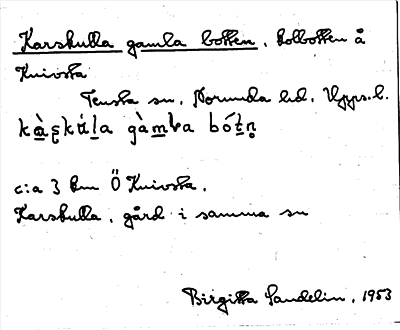 Karskulla gamla botten, kolbotten å
Knivsta
Tensta sn, Norunda hd, Upps. l.
kàʂkúl̠a gàm̠ɩa bót̠n̥
c:a 3 km Ö Knivsta.
Karskulla, gård i samma sn
Birgitta Sandelin, 1953